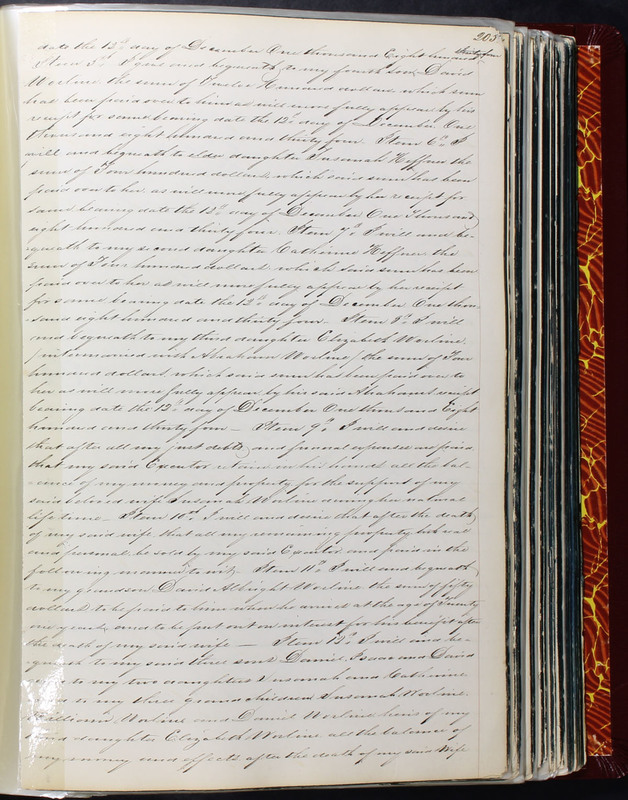 205
date the 12th day of December One thousand Eight hundred thirty four
Item 5th I give and bequeath to my fourth son David
Worline the sum of Twelve Hundred dollars which sum
has been paid over to him as will more fully appear by his
receipt for same bearing date the 12th day of December One
thousand eight hundred and thirty four. Item 6th I
will and bequeath to elder daughter Susannah Heffner the
sum of Four hundred dollars, which said sum has been
paid over to her, as will more fully appear by her receipt for
same bearing date the 12th day of December One Thousand
eight hundred and thirty four. Item 7th I will and be-
queath to my second daughter Catharine Heffner the
sum of Four hundred dollars which said sum has been
paid over to her as will more fully appear by her receipt
for same bearing date the 12th day of December One thou-
sand eight hundred and thirty four. Item 8th I will
and bequeath to my third daughter Elizabeth Worline
(intermarried with Abraham Worline) the sum of Four
hundred dollars which said sum has been paid over to
her as will more fully appear by his said Abrahams receipt
bearing date the 12th day of December One thousand Eight
hundred and thirty four — Item 9th I will and desire
that after all my just debts and funeral expenses are paid
that my said Executor retain in his hands all the bal-
-ance of my money and property for the support of my
said beloved wife Susannah Worline during her natural
life time — Item 10th I will and desire that after the death
of my said wife that all my remaining property both real
and personal be sold by my said Executor and paid in the
following manner to wit: Item 11th I will and bequeath
to my grandson David Albright Worline the sum of fifty
dollars to be paid to him when he arrives at the age of Twenty
one years, and to be put out on interest for his benefit after
the death of my said wife — Item 12th I will and be-
queath to my said three sons Daniel, Isaac and David
and to my two daughters Susannah and Catharine
and to my three grandchildren Susannah Worline,
William Worline and Daniel Worline heirs of my
said daughter Elizabeth Worline all the balance of
my money and effects after the death of my said Wife